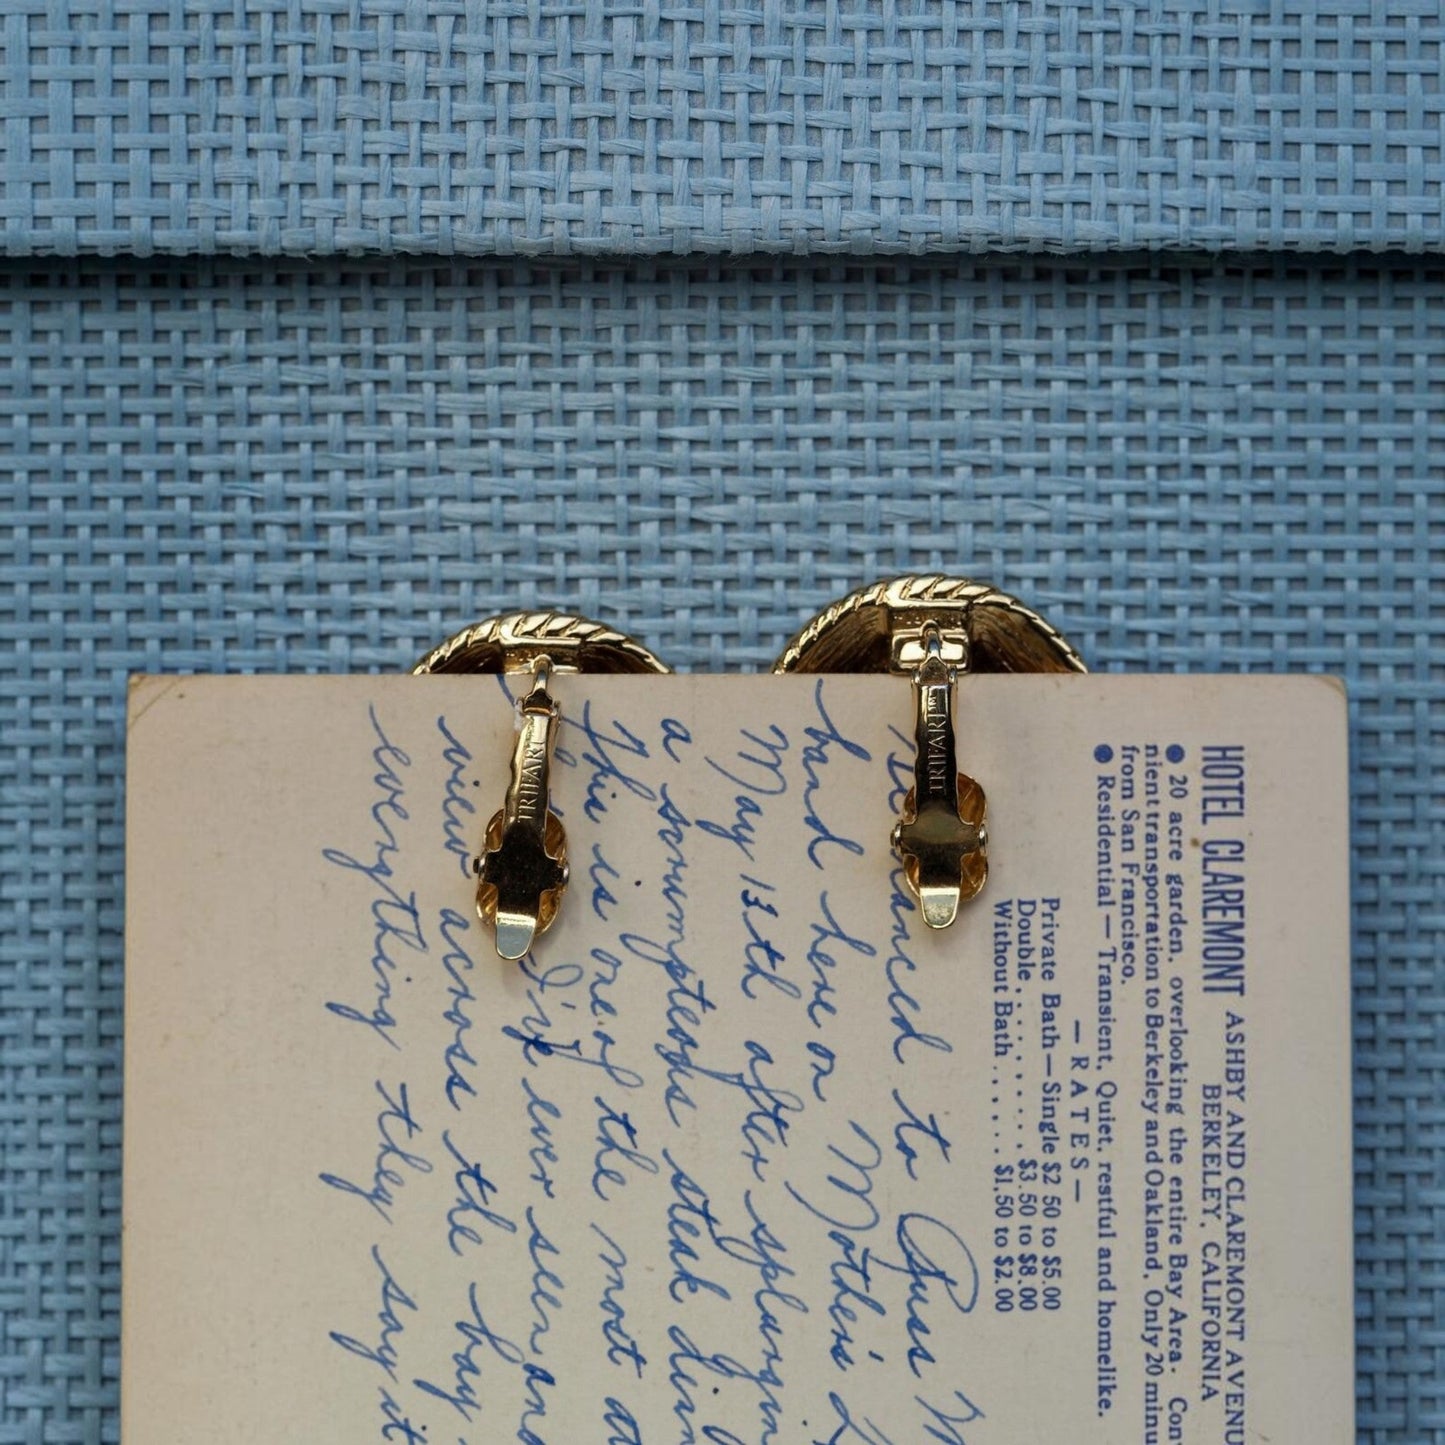 HOTEL CLAREMONT ASHBY AND CLAREMONT AVENU
BERKELEY, CALIFORNIA
● 20 acre garden, overlooking the entire Bay Area. Con
nient transportation to Berkeley and Oakland. Only 20 minu
from San Francisco.
● Residential — Transient. Quiet, restful and homelike.
— RATES —
Private Bath—Single $2 50 to $5.00
Double........ $3 50 to $8.00
Without Bath...... $1.50 to $2.00
to
hand here on Mother's
May 13th after splurgin
a scrumpteous steak din
This is one of the most
I've ever seen and
view across the bay
everything they say it
TRIFARI
TRIFARI